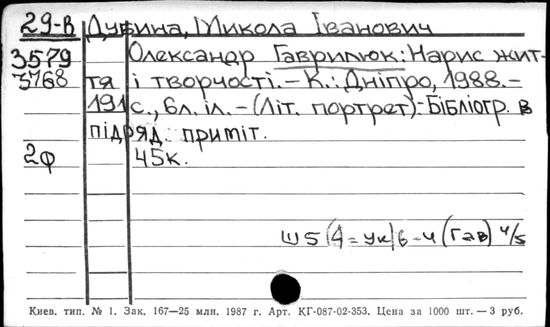 29-В Дубина, Микола Іванович
3579 Олександр Гаврилюк: Нарис жит-
3768 тя і творчості. – К.: Дніпро, 1988. –
191 с., 6л. іл. – (Літ. портрет). – Бібліогр. в
підряд. приміт.
2ф 45к.
Ш5(4=Ук)6-4(Гав) 4/5
Киев. тип. № 1. Зак. 167—25 млн. 1987 г. Арт. КГ-087-02-353. Цена за 1000 шт. — 3 руб.